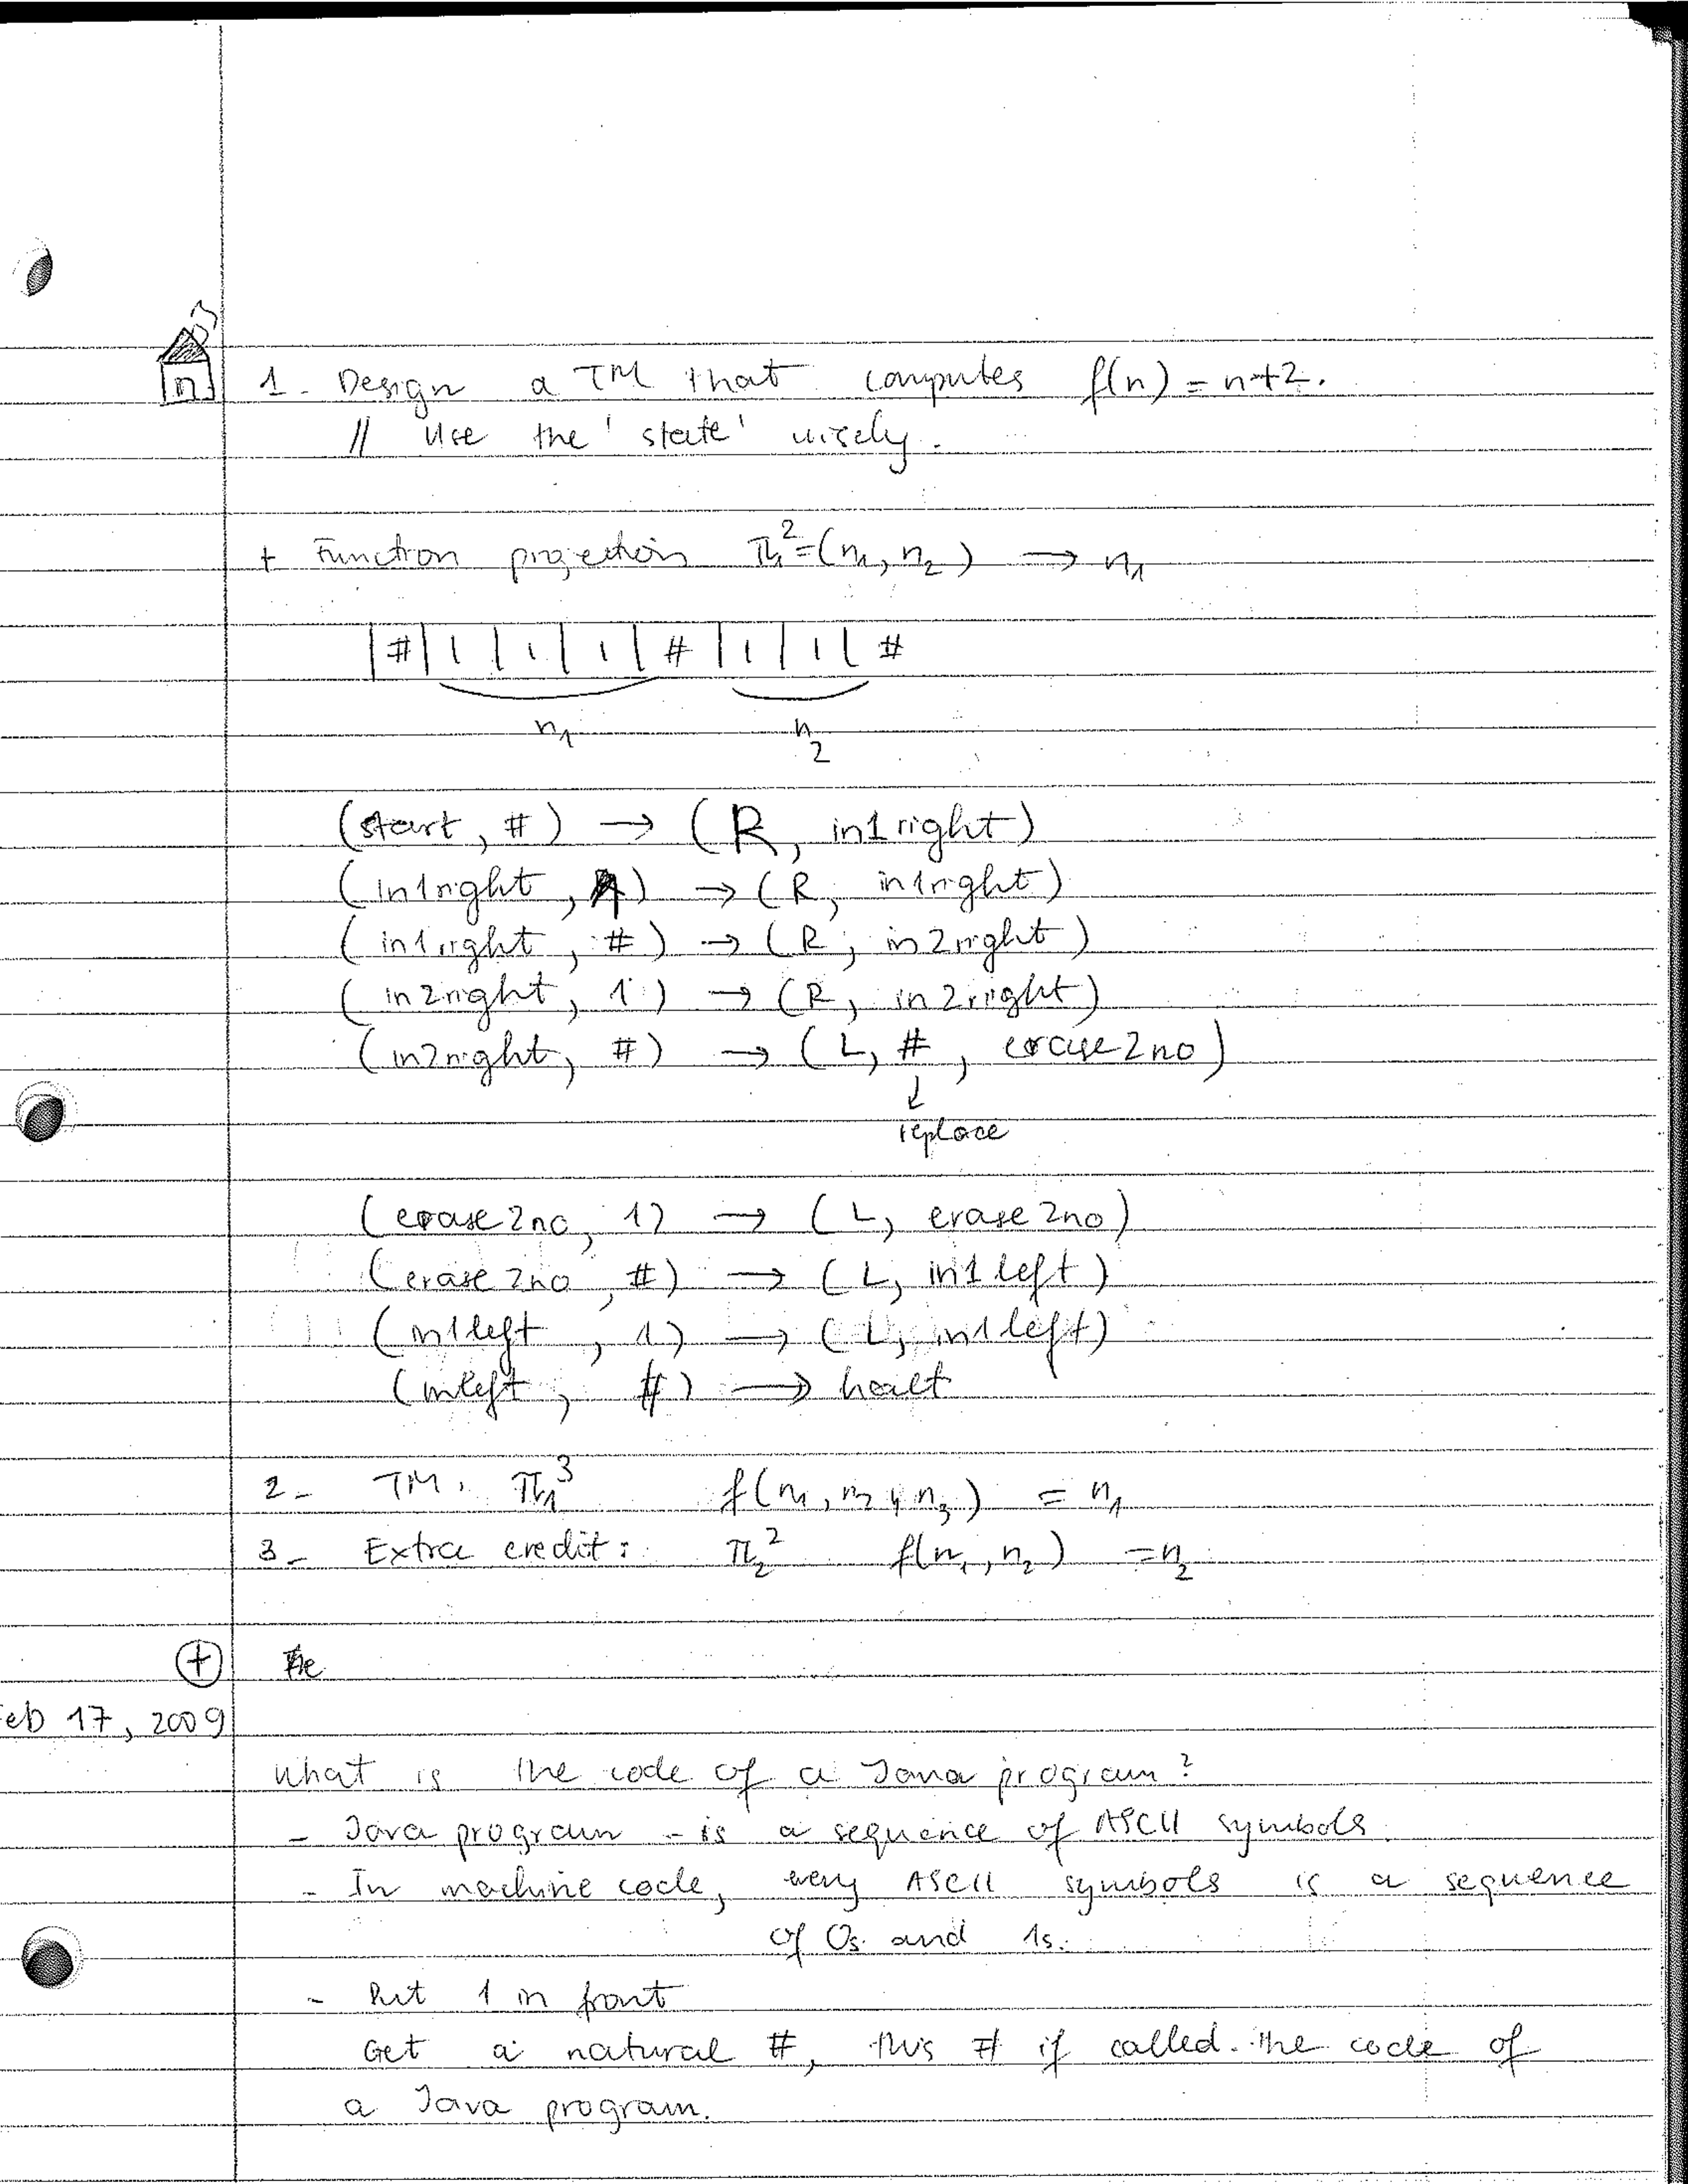 n 1 - Design a TM that computes f(n) = n+2.
// Use the 'state' wisely.
+ Function projection π₁²=(n₁, n₂) → n₁
|#|1|1|1|#|1|1|#
n₁ n₂
(start, #) → (R, in1right)
(in1right, 1) → (R, in1right)
(in1right, #) → (R, in2right)
(in2right, 1) → (R, in2right)
(in2right, #) → (L, #, erase2no)
↓
replace
(erase2no, 1) → (L, erase2no)
(erase2no, #) → (L, in1left)
(in1left, 1) → (L, in1left)
(inleft, #) → halt
2 - TM. π₁³ f(n₁, n₂, n₃) = n₁
3 - Extra credit: π₂² f(n₁, n₂) = n₂
+
Feb 17, 2009
What is the code of a Java program?
- Java program - is a sequence of ASCII symbols.
- In machine code, every ASCII symbols is a sequence
of 0s and 1s.
- Put 1 in front
Get a natural #, this # if called the code of
a Java program.